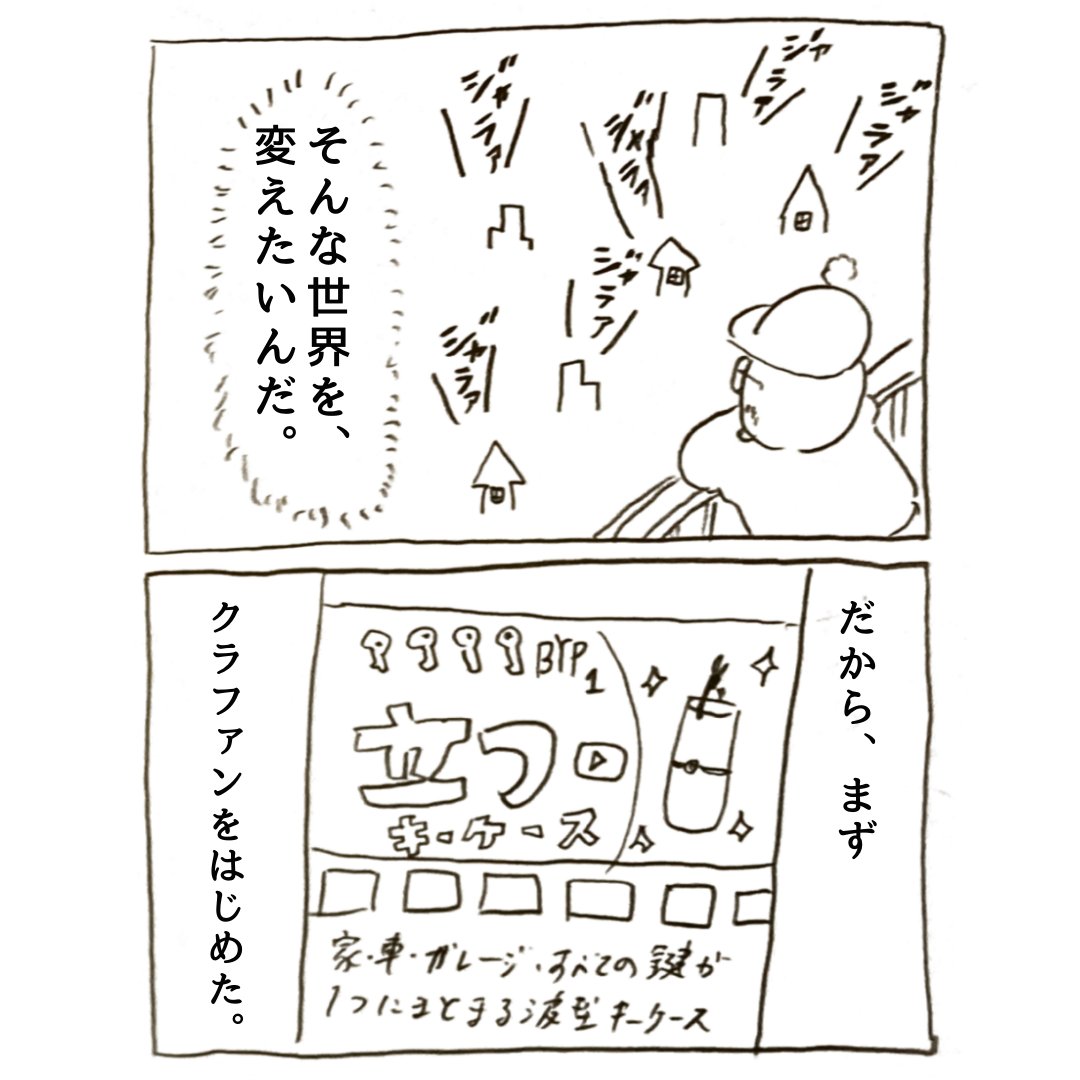 そんな世界を、
変えたいんだ。
ジャラァ
ジャラァ
ジャラァ
ジャラァ
ジャラァ
ジャラァ
だから、まず
BYP1
立つ
キーケース
家・車・ガレージ・すべての鍵が
1つにまとまる波型キーケース
クラファンをはじめた。